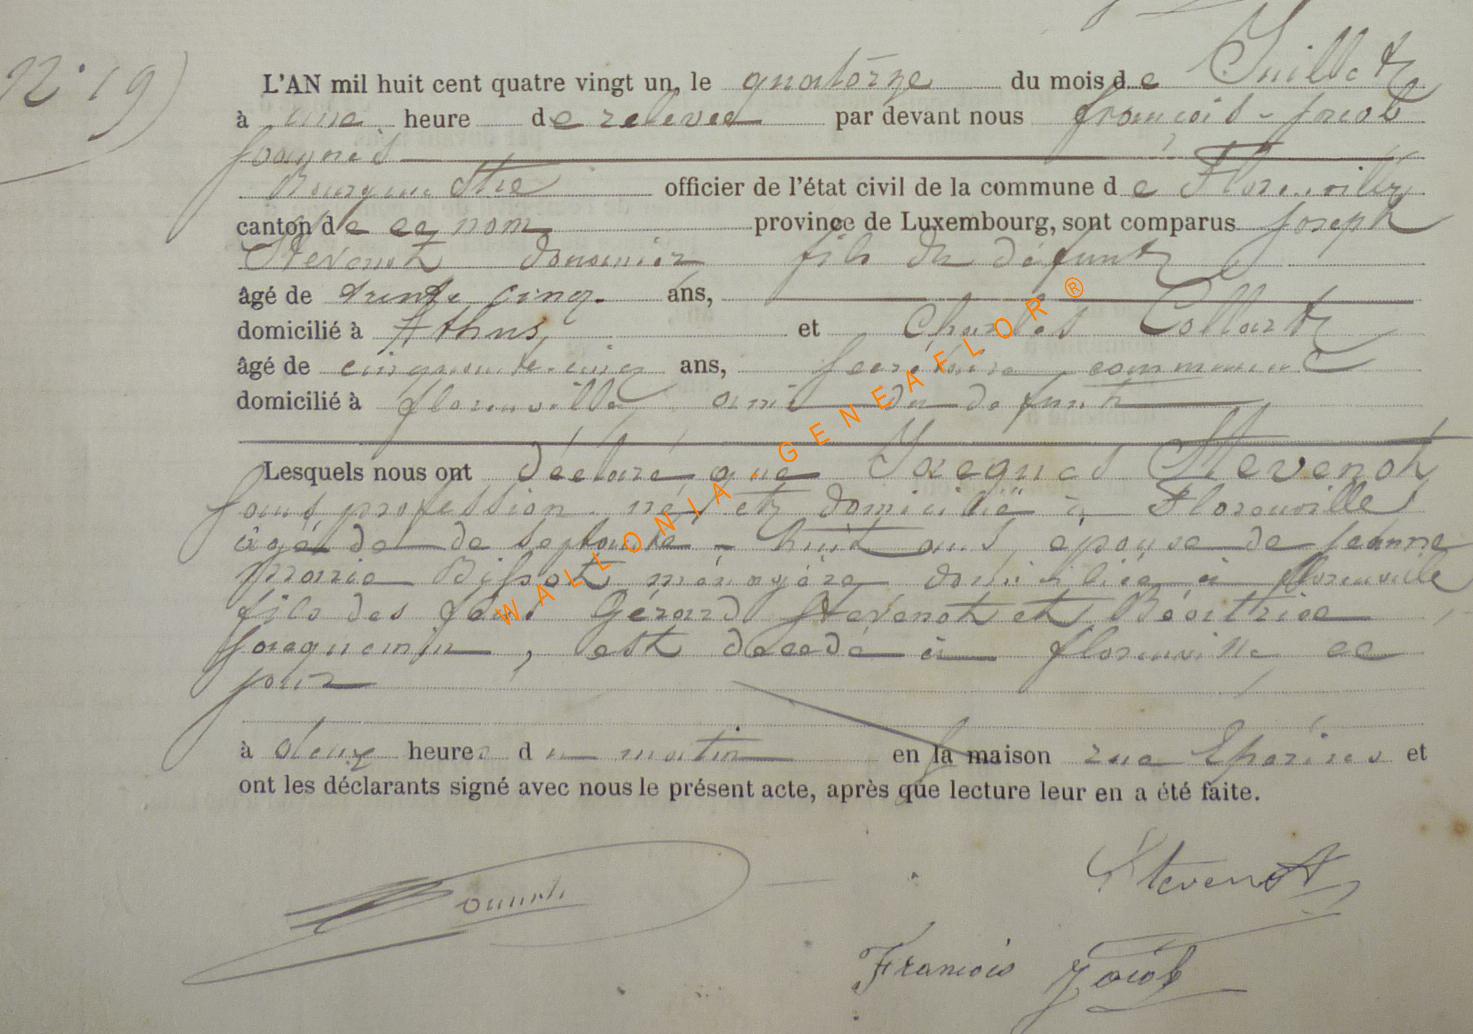 N° 19)
L'AN mil huit cent quatre vingt un, le quatorze du mois de Juillet
à une heure de relevée par devant nous françois-Jacob
Joannes
Bourgmestre officier de l'état civil de la commune de Florenville
canton de ce nom province de Luxembourg, sont comparus Joseph
Stévenot douanier fils du défunt
âgé de trente cinq ans,
domicilié à Athus, et Charles Collart
âgé de cinquante-cinq ans, secrétaire communal
domicilié à florenville ami du défunt
Lesquels nous ont déclaré que Jacques Stevenot
sans profession né et domicilié à Florenville
âgé de de septante-huit ans, épouse de Jeanne
Marie Bissot ménagère domiciliée à florenville
fils des feus Gérard Stévenot et Béatrice
Jacquemin, est decedé à florenville ce
jour
à deux heures du matin en sa maison rue Epérires et
ont les déclarants signé avec nous le présent acte, après que lecture leur en a été faite.
Stevenot
François Jacob
WALLONIA - GENEAFLOR ®